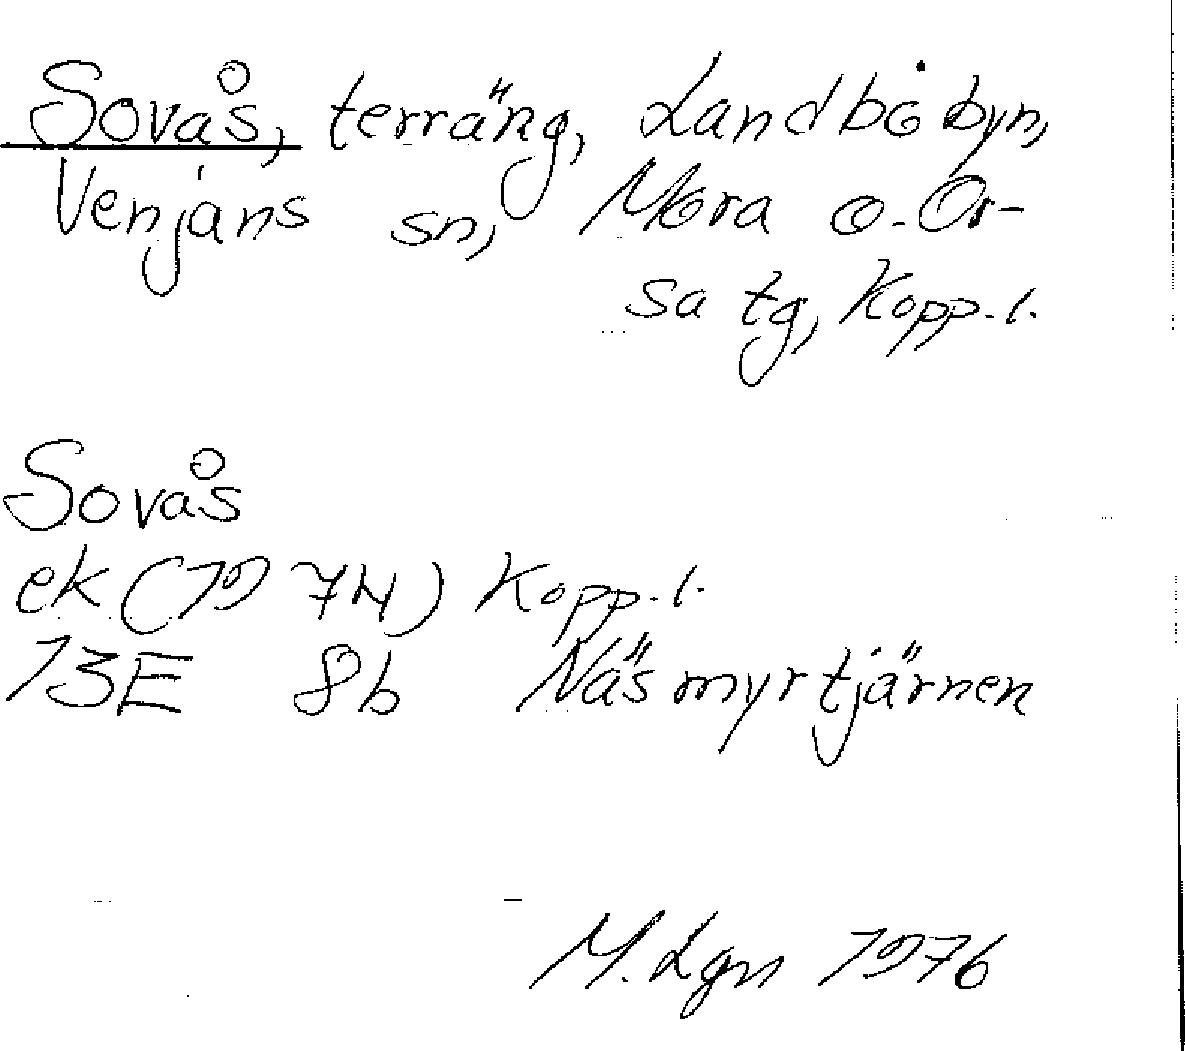 Sovås, terräng, Landbobyn,
Venjans sn, Mora o. Or-
sa tg, Kopp. l.
Sovås
ek (1974) Kopp. l.
13E 8b Näsmyrtjärnen
M. Lgn 1976